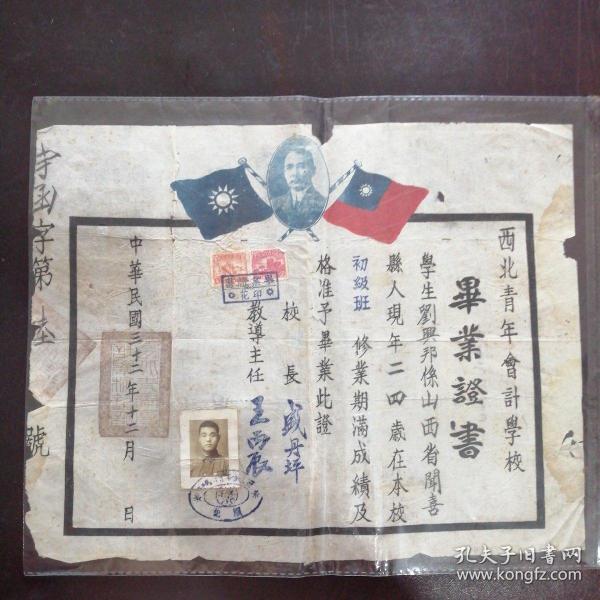 西北青年會計學校
畢業證書
學生劉興邦係山西省聞喜
縣人現年二四歲在本校
初級班 修業期滿成績及
格准予畢業此證
校長 成丹坪
教導主任 王西
中華民國三十二年十二月 日
字第 號
印花
孔夫子旧书网
www.kongfz.com